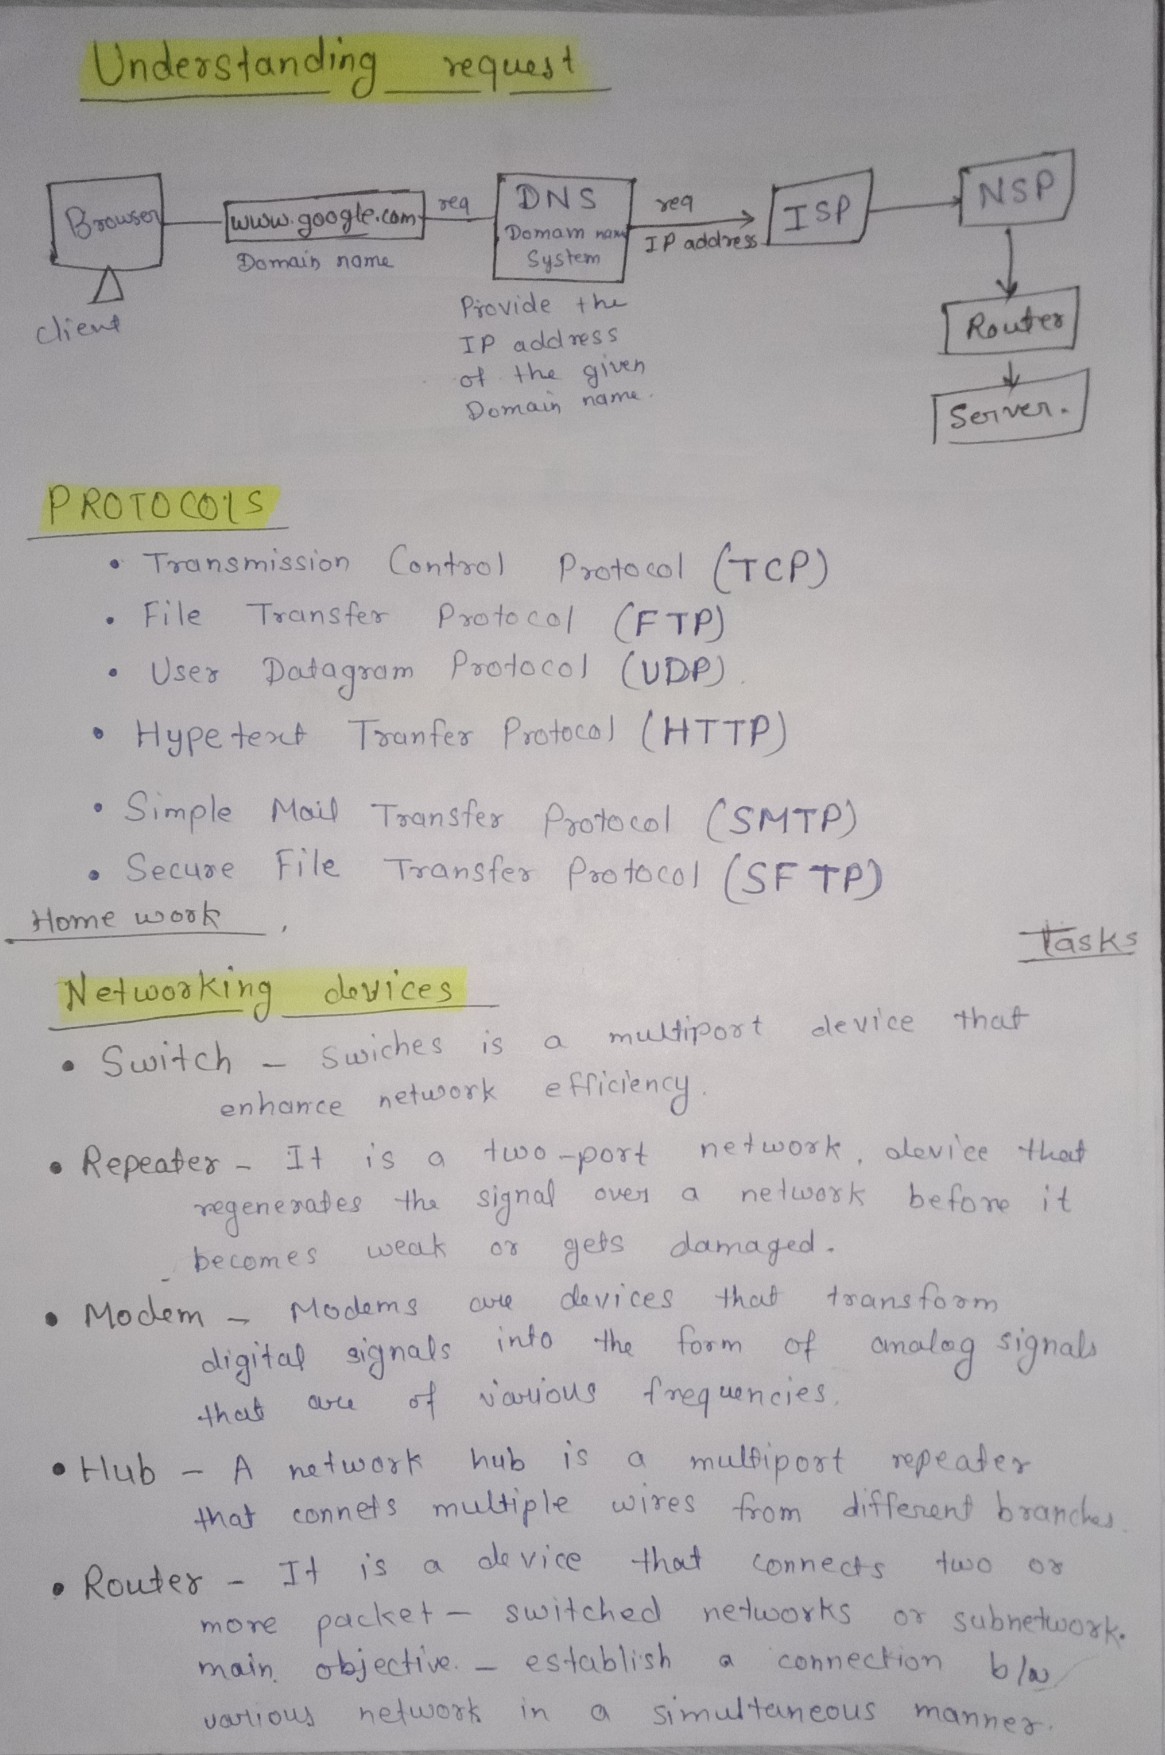 Understanding request
Browser
www.google.com
req
DNS
Domain name
System
req
IP address
ISP
NSP
Domain name
client
Provide the
IP address
of the given
Domain name.
Router
Server.
PROTOCOLS
• Transmission Control Protocol (TCP)
• File Transfer Protocol (FTP)
• User Datagram Protocol (UDP).
• Hypetext Tranfer Protocol (HTTP)
• Simple Mail Transfer Protocol (SMTP)
• Secure File Transfer Protocol (SFTP)
Home work
Tasks
Networking devices
• Switch - Swiches is a multiport device that
enhance network efficiency.
• Repeater - It is a two-port network, device that
regenerates the signal over a network before it
becomes weak or gets damaged.
• Modem - Modems are devices that transform
digital signals into the form of analog signals
that are of various frequencies.
• Hub - A network hub is a multiport repeater
that connets multiple wires from different branches.
• Router - It is a device that connects two or
more packet - switched networks or subnetwork.
main objective. - establish a connection b/w
various network in a simultaneous manner.